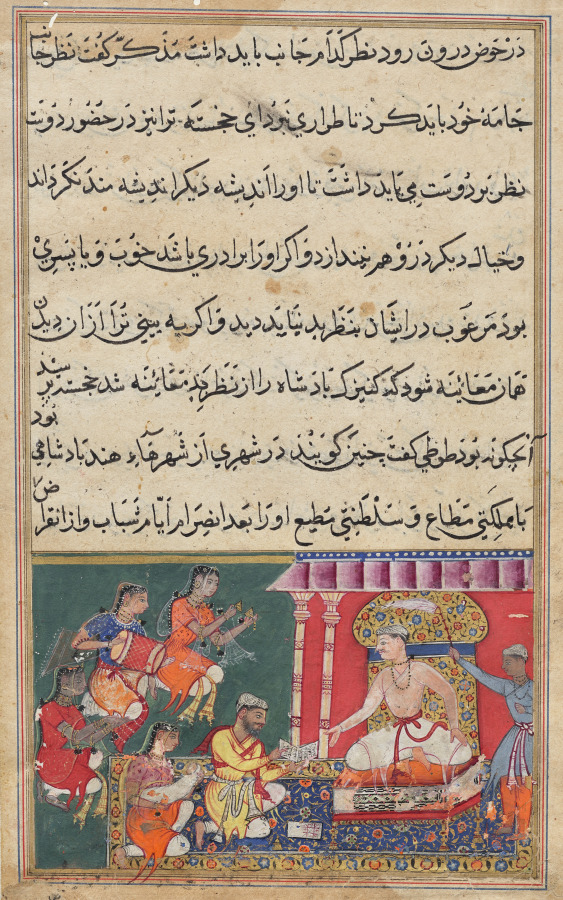 در حوض درون رود نظر کدام جانب باید داشت مذکر گفت نظر جانب
جامهٔ خود باید کرد تا طراری نبرد ای خجسته ترا نیز در حضور دوست
نظر بر دوست می باید داشت تا او را اندیشه دیکر اندیشه مند نکرداند
و خیال دیکر در و هم نیندازد و اکر او را برادری باشد خوب و یا پسری
بود مرغوب در ایشان بنظر بد نباید دید و اکر به بینی ترا از ان دیدن
همان معاینه شود که کنیزک بادشاه را از نظر بد معاینه شد خجسته پرسید
آنچکونه بود طوطی کفت چنین کویند در شهری از شهرهاء هند بادشاهی بود
با مملکتی مطاع و سلطنتی مطیع او را بعد انصرام ایام شباب و از انقراض